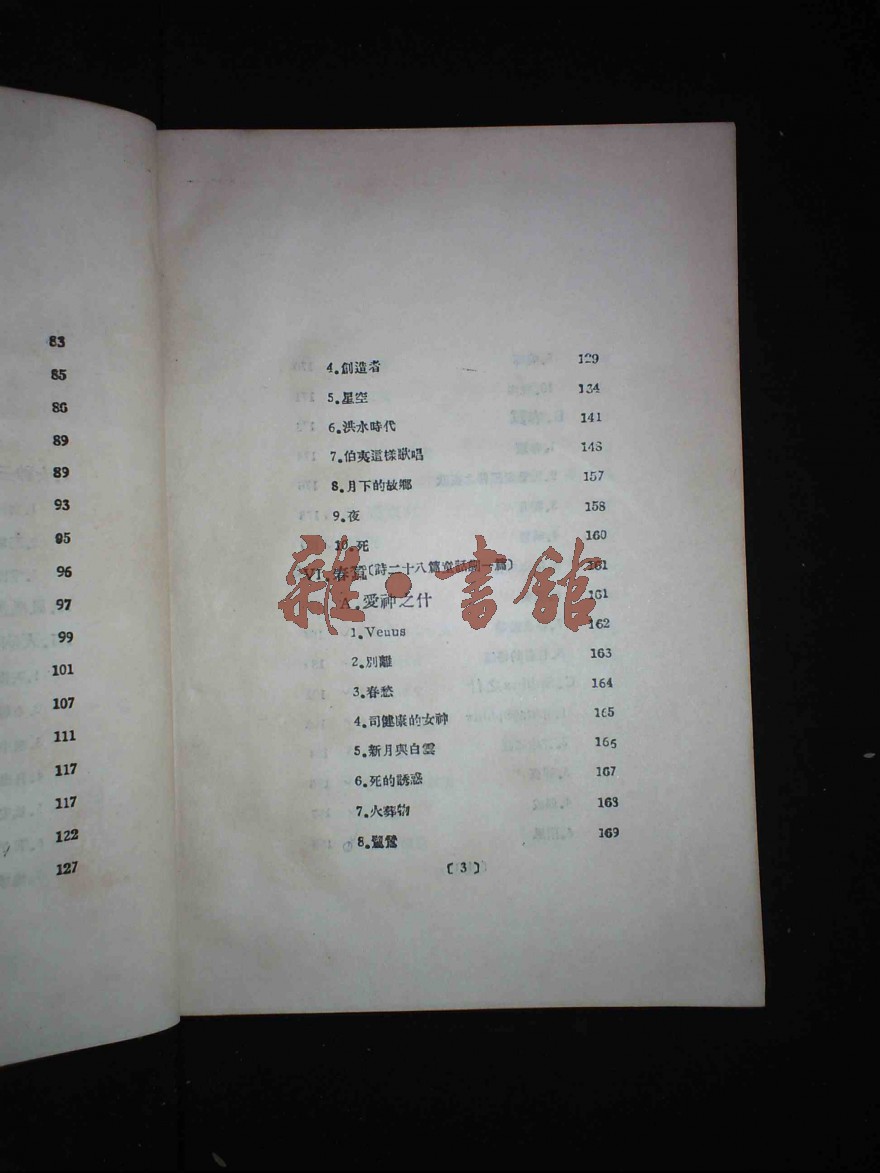 83
85
86
89
89
93
95
96
97
99
101
107
111
117
117
122
127
4.創造者 129
5.星空 134
6.洪水時代 141
7.伯夷這樣歌唱 148
8.月下的故鄉 157
9.夜 158
10.死 160
VI.春蠶〔詩二十八篇童話劇一篇〕 161
A.愛神之什 161
1.Venus 162
2.別離 163
3.春愁 164
4.司健康的女神 165
5.新月與白雲 166
6.死的誘惑 167
7.火葬物 168
8.鷺鷥 169
〔3〕
雜·書館